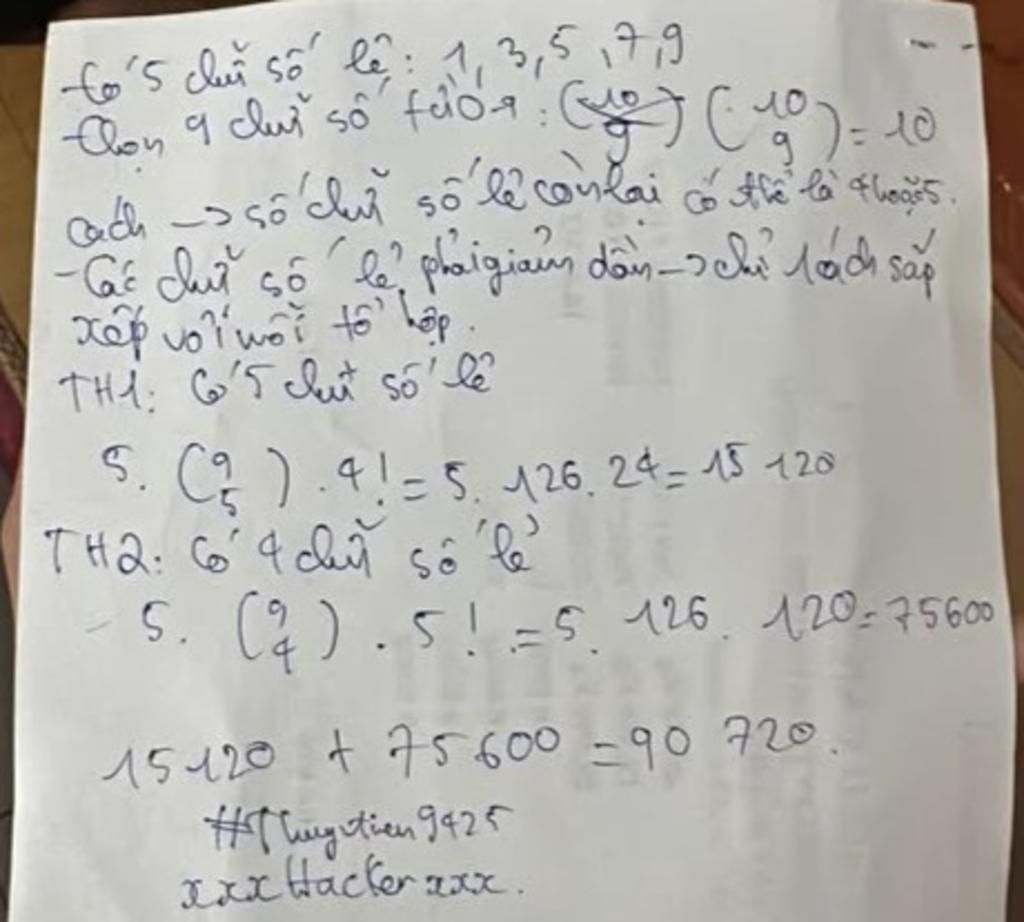 - Có 5 chữ số lẻ: 1, 3, 5, 7, 9
- Chọn 9 chữ số từ 0-9: (10 9) (10 9) = 10
cách → số chữ số lẻ còn lại có thể là 4 hoặc 5.
- Các chữ số lẻ phải giảm dần → chỉ 1 cách sắp
xếp với mỗi tổ hợp.
TH1: Có 5 chữ số lẻ
5. (9 5) . 4! = 5. 126. 24 = 15 120
TH2: Có 4 chữ số lẻ
5. (9 4) . 5! = 5. 126. 120 = 75600
15120 + 75600 = 90 720.
#Thuytien9425
xxxHackerxxx.